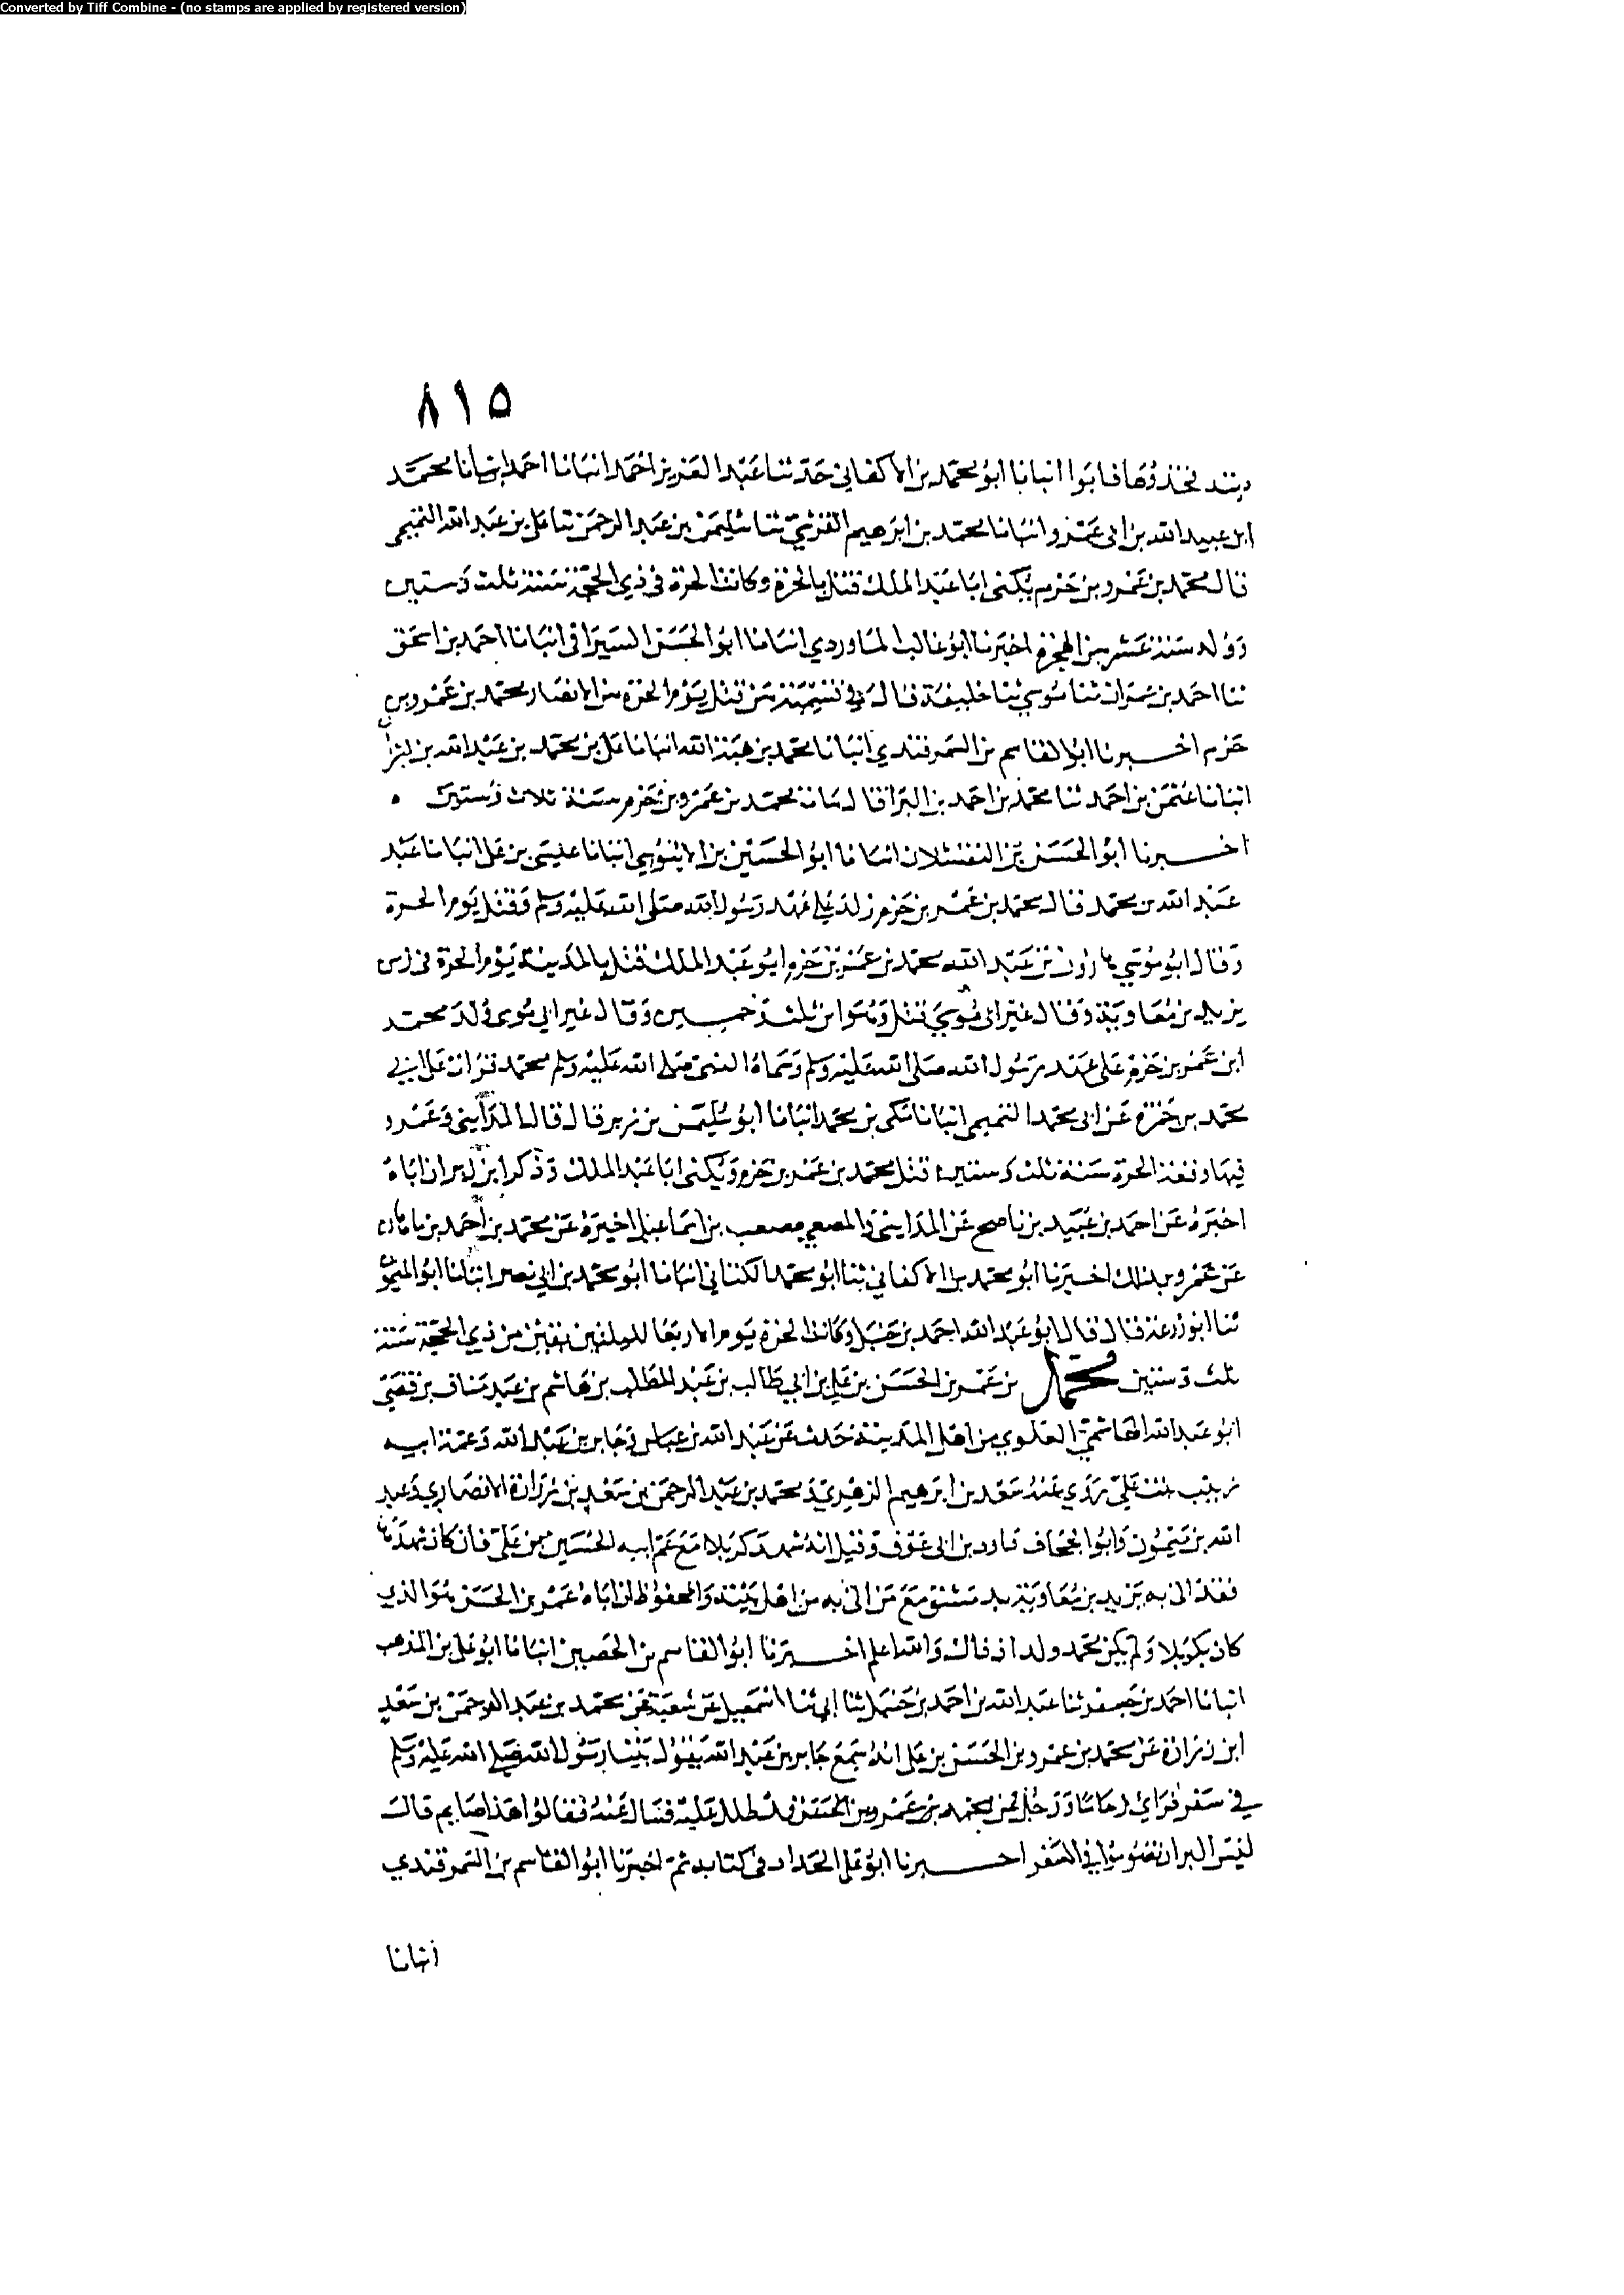 Converted by Tiff Combine - (no stamps are applied by registered version)
٨١٥
فابوا انبانا ابو محمد بن الاكفاني حدثنا عبد العزيز احمد انبانا احمد انبانا محمد
ابن عبيد الله بن ابي عمرو انبانا محمد بن ابرهيم القرشي ثنا سليمن بن عبد الرحمن ثنا علي بن عبد الله التميمي
قال محمد بن عمرو بن حزم يكنى ابا عبد الملك قتل بالحرة وكانت الحرة في ذي الحجة سنة ثلث وستين
وولد سنة عشر من الهجرة اخبرنا ابو غالب الماوردي انبانا ابو الحسن السيرافي انبانا احمد بن اسحق
ثنا احمد بن عمران ثنا موسي ثنا خليفة قال في تسمية من قتل يوم الحرة من الانصار محمد بن عمرو بن
حزم اخبرنا ابو القاسم بن السمرقندي انبانا محمد بن هبة الله انبانا علي بن محمد بن عبد الله بن بشران
انبانا عثمن بن احمد ثنا محمد بن احمد بن البرا قال مات محمد بن عمرو بن حزم سنة ثلاث وستين ه
اخبرنا ابو الحسن بن انبانا ابو الحسين بن الابنوسي انبانا عيسى بن علي انبانا عبد
عبد الله بن محمد قال محمد بن عمر بن حزم ولد علي عهد رسول الله صلى الله عليه وسلم وقتل يوم الحرة
وقال ابو موسي هارون بن عبد الله محمد بن عمر بن حزم ابو عبد الملك قتل بالمدينة يوم الحرة في زمن
يزيد بن معاوية وقال غير ابي موسي قتل وهو ابن ثلث وخمسين وقال غير ابي موسى ولد محمد
ابن عمر بن حزم على عهد رسول الله صلى الله عليه وسلم وسماه النبي صلى الله عليه وسلم محمد قرات على ابي
محمد بن حمزة عن ابي محمد التميمي انبانا مكي بن محمد انبانا ابو سليمن بن زبر قال قال المدايني وعمرو
فيها وقعة الحرة سنة ثلث وستين قتل محمد بن عمر بن حزم ويكنى ابا عبد الملك وذكر ابن زبر ان اباه
اخبره عن احمد بن عبيد بن ناصح عن المدايني والمصعبي مصعب بن اسماعيل اخبره عن محمد بن احمد بن ماهان
عن عمرو بذلك اخبرنا ابو محمد بن الاكفاني ثنا ابو محمد الكتاني انبانا ابو محمد بن ابي نصر انبانا ابو الميمون
ثنا ابو زرعة قال قال ابو عبد الله احمد بن حنبل وكانت الحرة يوم الاربعا لليلتين بقيتين من ذي الحجة سنة
ثلث وستين محمد بن عمر بن الحسن بن علي بن ابي طالب بن عبد المطلب بن هاشم بن عبد مناف بن قصي
ابو عبد الله الهاشمي العلوي من اهل المدينة حدث عن عبد الله بن عباس وجابر بن عبد الله وعمة ابيه
زينب بنت علي روى عنه سعد بن ابرهيم الزهري ومحمد بن عبد الرحمن بن سعد بن زرارة الانصاري وعبد
الله بن ميمون وابو الجحاف داود بن ابي عوف وقيل انه شهد كربلا مع عم ابيه الحسين بن علي فان كان شهدها
فقد اتى به يزيد بن معاوية بدمشق مع من اتى به من اهل بيته والمحفوظ ان اباه عمر بن الحسن هو الذي
كان بكربلا ولم يكن محمد ولد اذ ذاك والله اعلم اخبرنا ابو القاسم بن الحصين انبانا ابو علي بن المذهب
انبانا احمد بن جعفر ثنا عبد الله بن احمد بن حنبل ثنا ابي ثنا اسمعيل عن شعبة عن محمد بن عبد الرحمن بن سعد
ابن زرارة عن محمد بن عمرو بن الحسن بن علي انه سمع جابر بن عبد الله يقول بينا رسول الله صلى الله عليه وسلم
في سفر فراى زحاما ورجل محمد بن عمرو بن الحسن قد ظلل عليه فسال عنه فقالوا هذا صايم قال
ليس البر ان تصوموا في السفر اخبرنا ابو علي الحداد في كتابه ثم اخبرنا ابو القاسم بن السمرقندي
انبانا